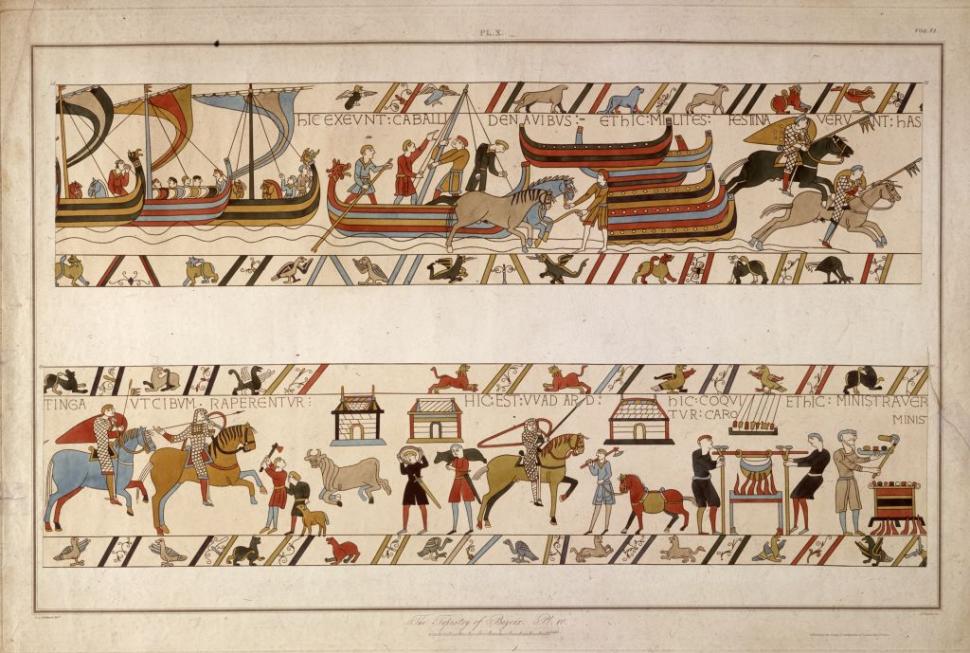 PL. X.
VOL. VI.
HIC EXEVNT: CABALLI DENAVIBVS:- ETHIC: MILITES: FESTINA VERVNT: HAS
TINGA VTCIBVM· RAPERENTVR:
HIC: EST: VVADARD:
HIC: COQVI
TVR: CARO
ETHIC: MINISTRAVER
MINIS
The Tapestry of Bayeux. Pl. IV.